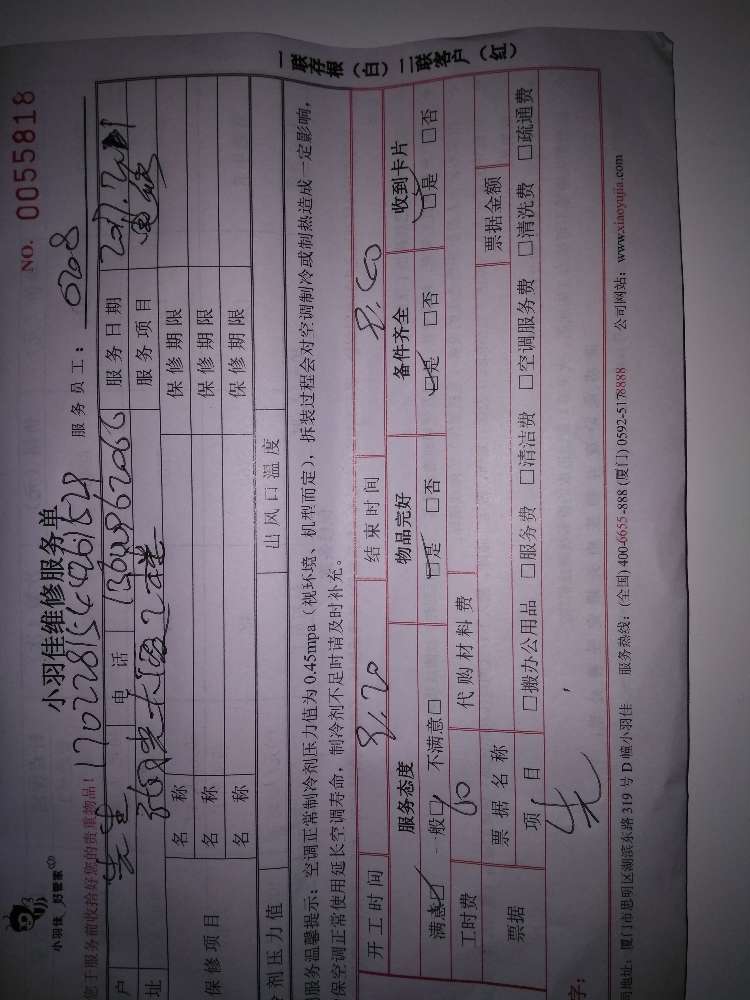 小羽佳 好管家
小羽佳维修服务单
NO. 0055818
您于服务前收拾好您的贵重物品！
服务员工： 0208
户
电 话
服务日期
址
服务项目
保修项目
名 称
保修期限
名 称
保修期限
名 称
保修期限
剂压力值
出风口温度
服务温馨提示：空调正常制冷剂压力值为 0.45mpa（视环境、机型而定），拆装过程会对空调制冷或制热造成一定影响，
保空调正常使用延长空调寿命，制冷剂不足时请及时补充。
开工时间 8:20 结束时间 8:40
服务态度 物品完好 备件齐全 收到卡片
满意□ 一般□ 不满意□ □是 □否 □是 □否 □是 □否
工时费 60 代购材料费
票据 票据名称 票据金额
项 目 □搬办公用品 □服务费 □清洁费 □空调服务费 □清洗费 □疏通费
字：
地址：厦门市思明区湖滨东路 319 号 D 幢小羽佳 服务热线：(全国) 400-6655-888 (厦门) 0592-5178888 公司网站：www.xiaoyujia.com
一联存根（白）二联客户（红）